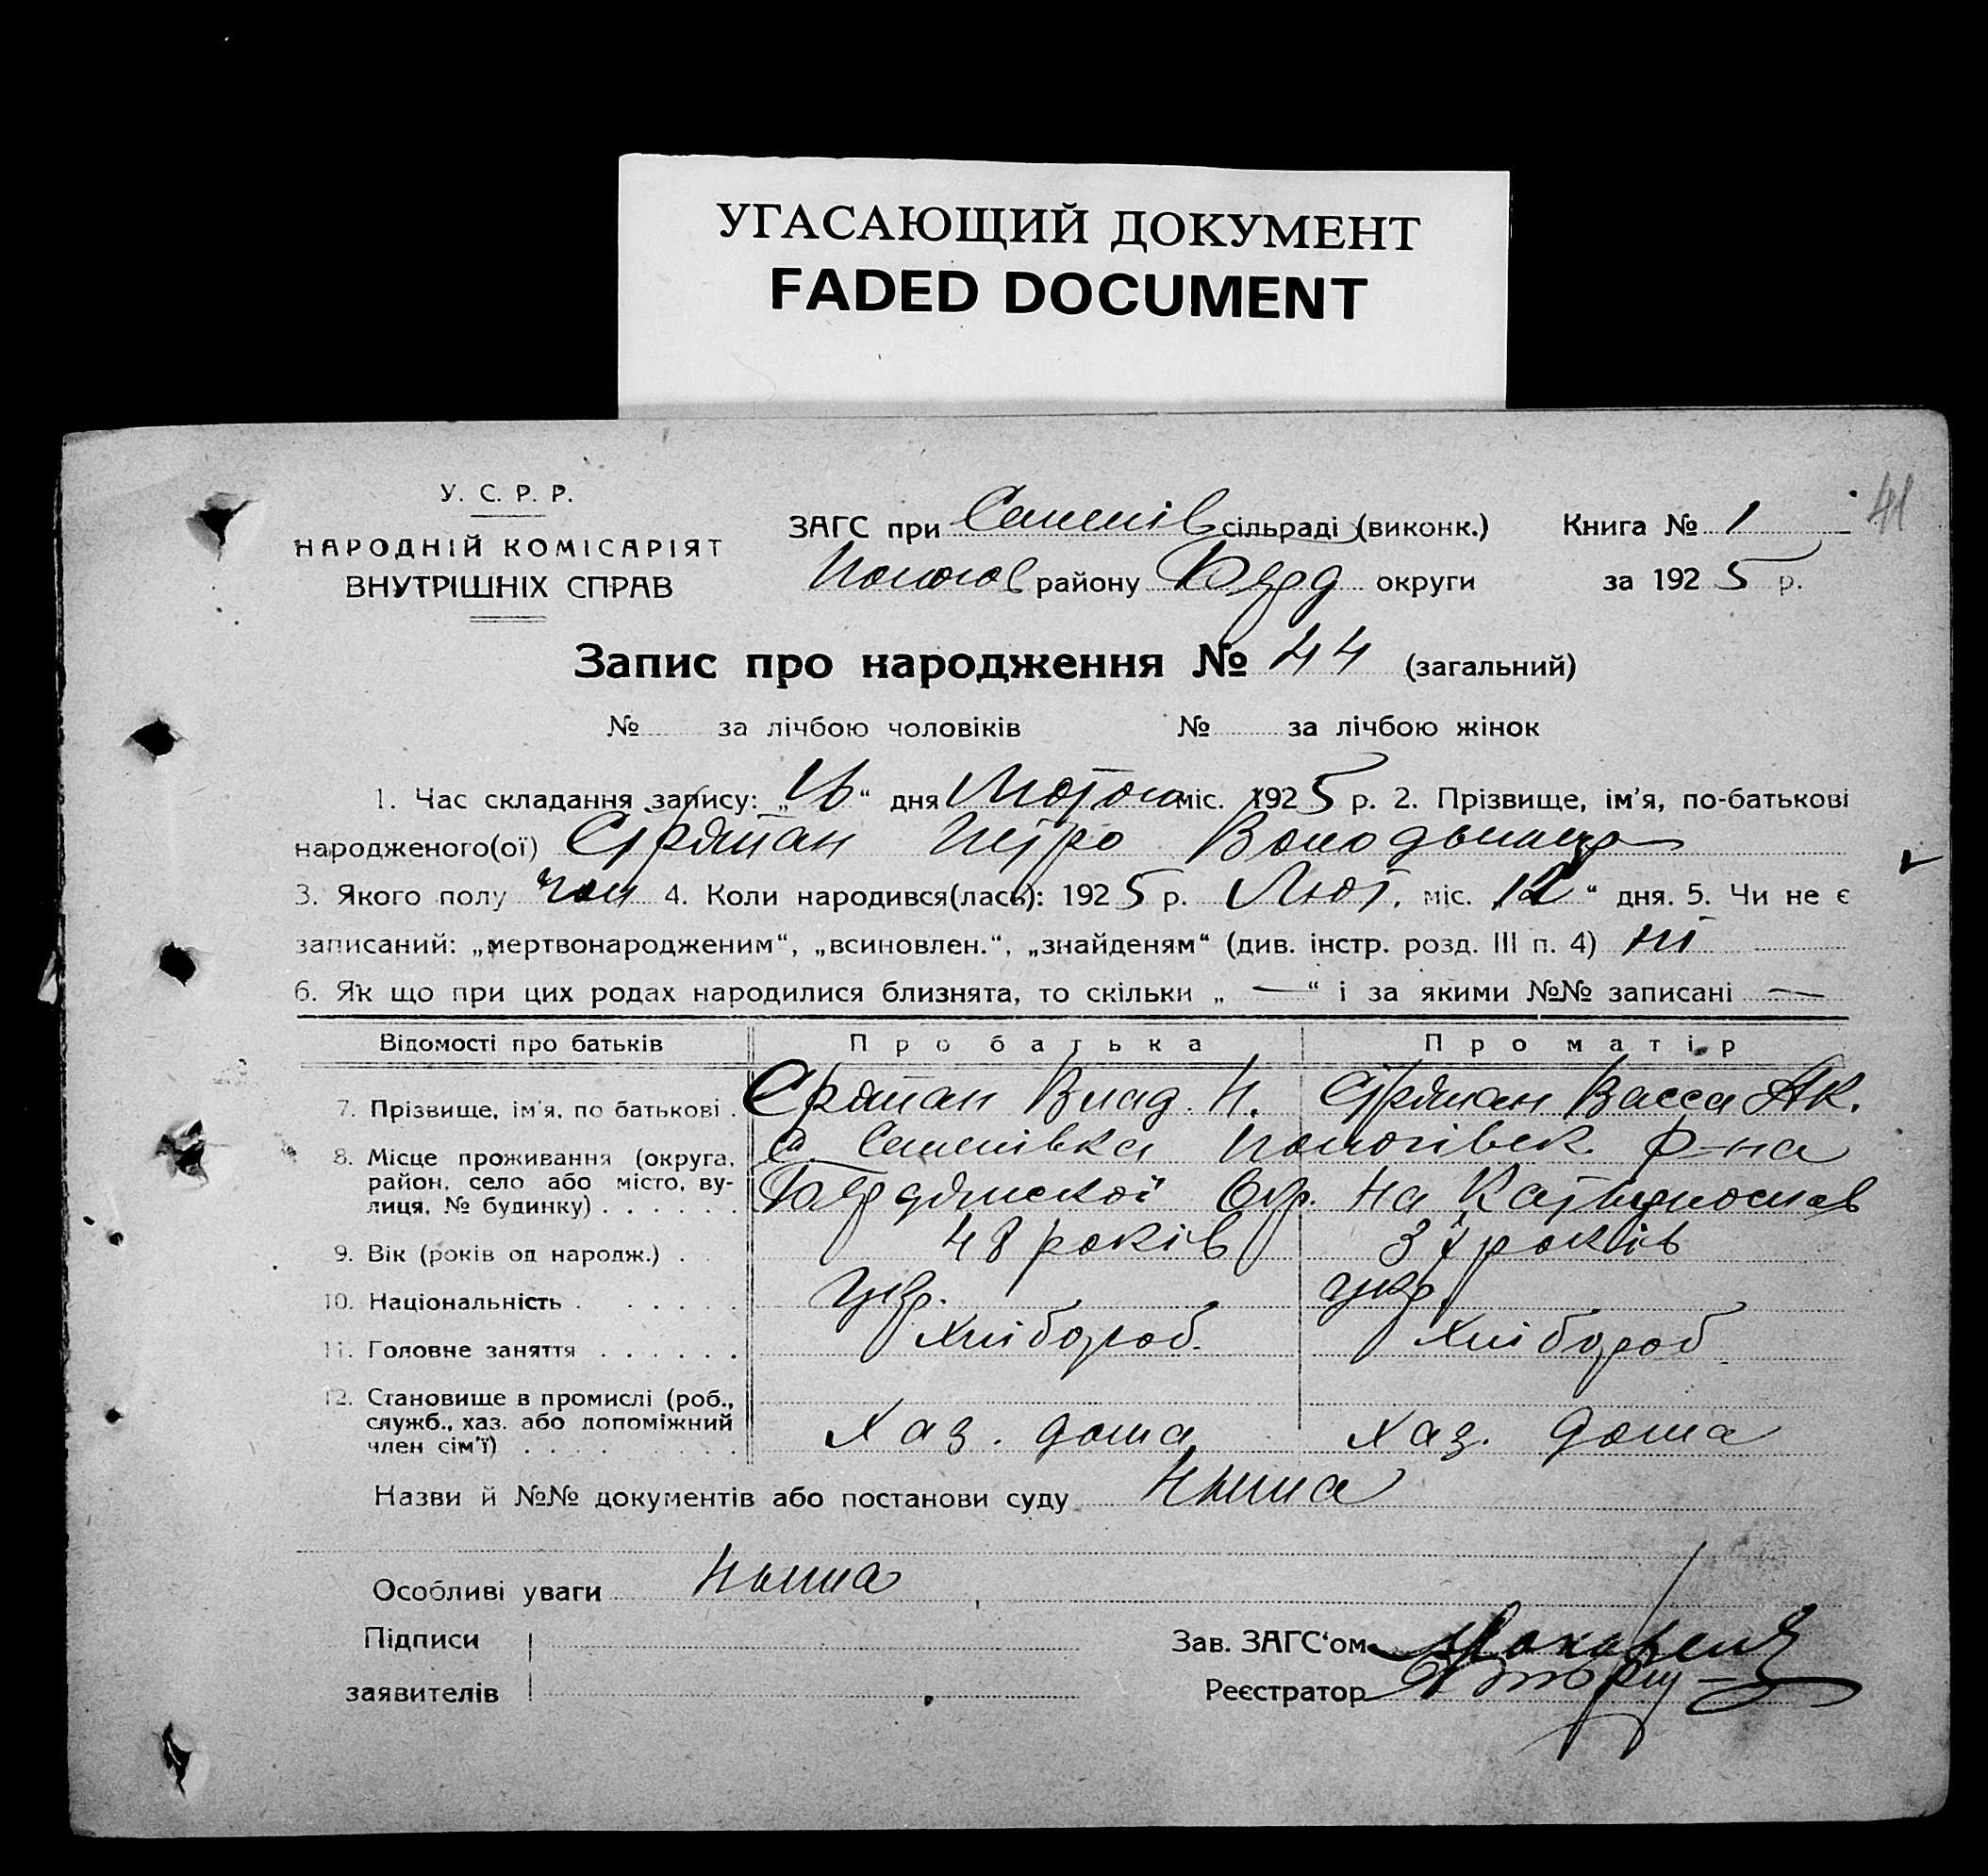 УГАСАЮЩИЙ ДОКУМЕНТ
FADED DOCUMENT
41
У. С. Р. Р.
НАРОДНІЙ КОМІСАРІЯТ
ВНУТРІШНІХ СПРАВ
ЗАГС при Семенів сільраді (виконк.) Книга № 1
Пологов району Берд округи за 1925 р.
Запис про народження № 44 (загальний)
№ за лічбою чоловіків № за лічбою жінок
1. Час складання запису: „16“ дня Лютого міс. 1925 р. 2. Прізвище, ім'я, по-батькові
народженого(ої) Петро
3. Якого полу чол 4. Коли народився(лась): 1925 р. Лют. міс. 12“ дня. 5. Чи не є
записаний: „мертвонародженим“, „всиновлен.“, „знайденям“ (див. інстр. розд. III п. 4) ні
6. Як що при цих родах народилися близнята, то скільки „ — “ і за якими №№ записані —
Відомості про батьків Про батька Про матір
7. Прізвище, ім'я, по батькові . Влад. Васса Як.
8. Місце проживання (округа, район, село або місто, вулиця, № будинку) . . . . . .
с. Семенівка Пологівск. р-на
Бердянської Окр. на Катеринослав
9. Вік (років од народж.) . 48 років 37 років
10. Національність . . . . . укр. укр.
11. Головне заняття . . . . . . Хлібороб. Хлібороб
12. Становище в промислі (роб., служб., хаз. або допоміжний член сім'ї) . . . .
Хаз. дома Хаз. дома
Назви й №№ документів або постанови суду Нема
Особливі уваги Нема
Підписи
заявителів
Зав. ЗАГС‘ом
Реєстратор